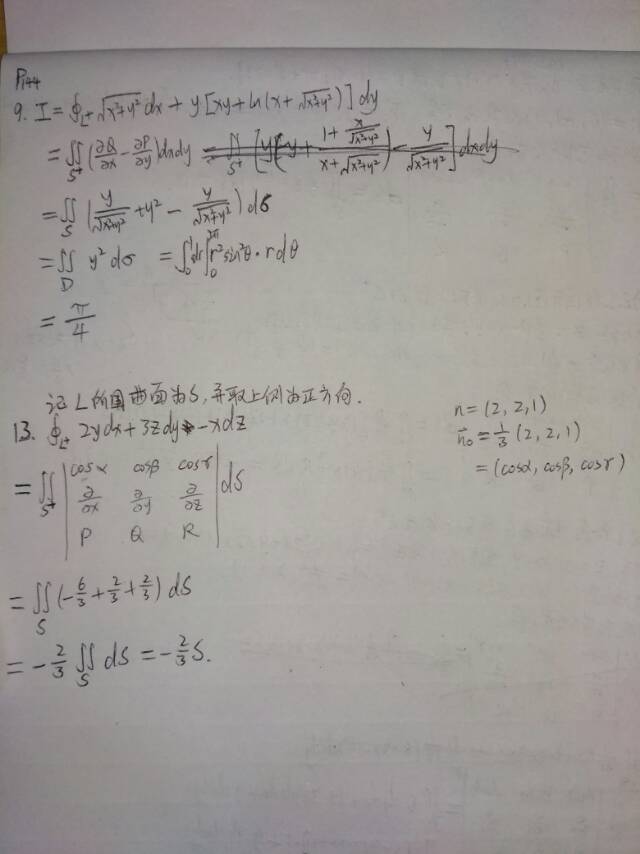 P144
9. I = ∮_{L+} √(x²+y²) dx + y [xy + ln(x + √(x²+y²))] dy
= ∬_{S+} (∂Q/∂x - ∂P/∂y) dxdy
= ∬_S (y/√(x²+y²) + y² - y/√(x²+y²)) dσ
= ∬_D y² dσ = ∫₀¹ dr ∫₀^{2π} r² sin²θ · r dθ
= π/4
记 L 所围曲面为 S, 并取上侧为正方向.
13. ∮_{L+} 2y dx + 3z dy - x dz
n = (2, 2, 1)
n⃗₀ = 1/3 (2, 2, 1)
= (cosα, cosβ, cosγ)
= ∬_{S+} | cosα cosβ cosγ | dS
∂/∂x ∂/∂y ∂/∂z
P Q R
= ∬_S (-6/3 + 2/3 + 2/3) dS
= -2/3 ∬_S dS = -2/3 S.